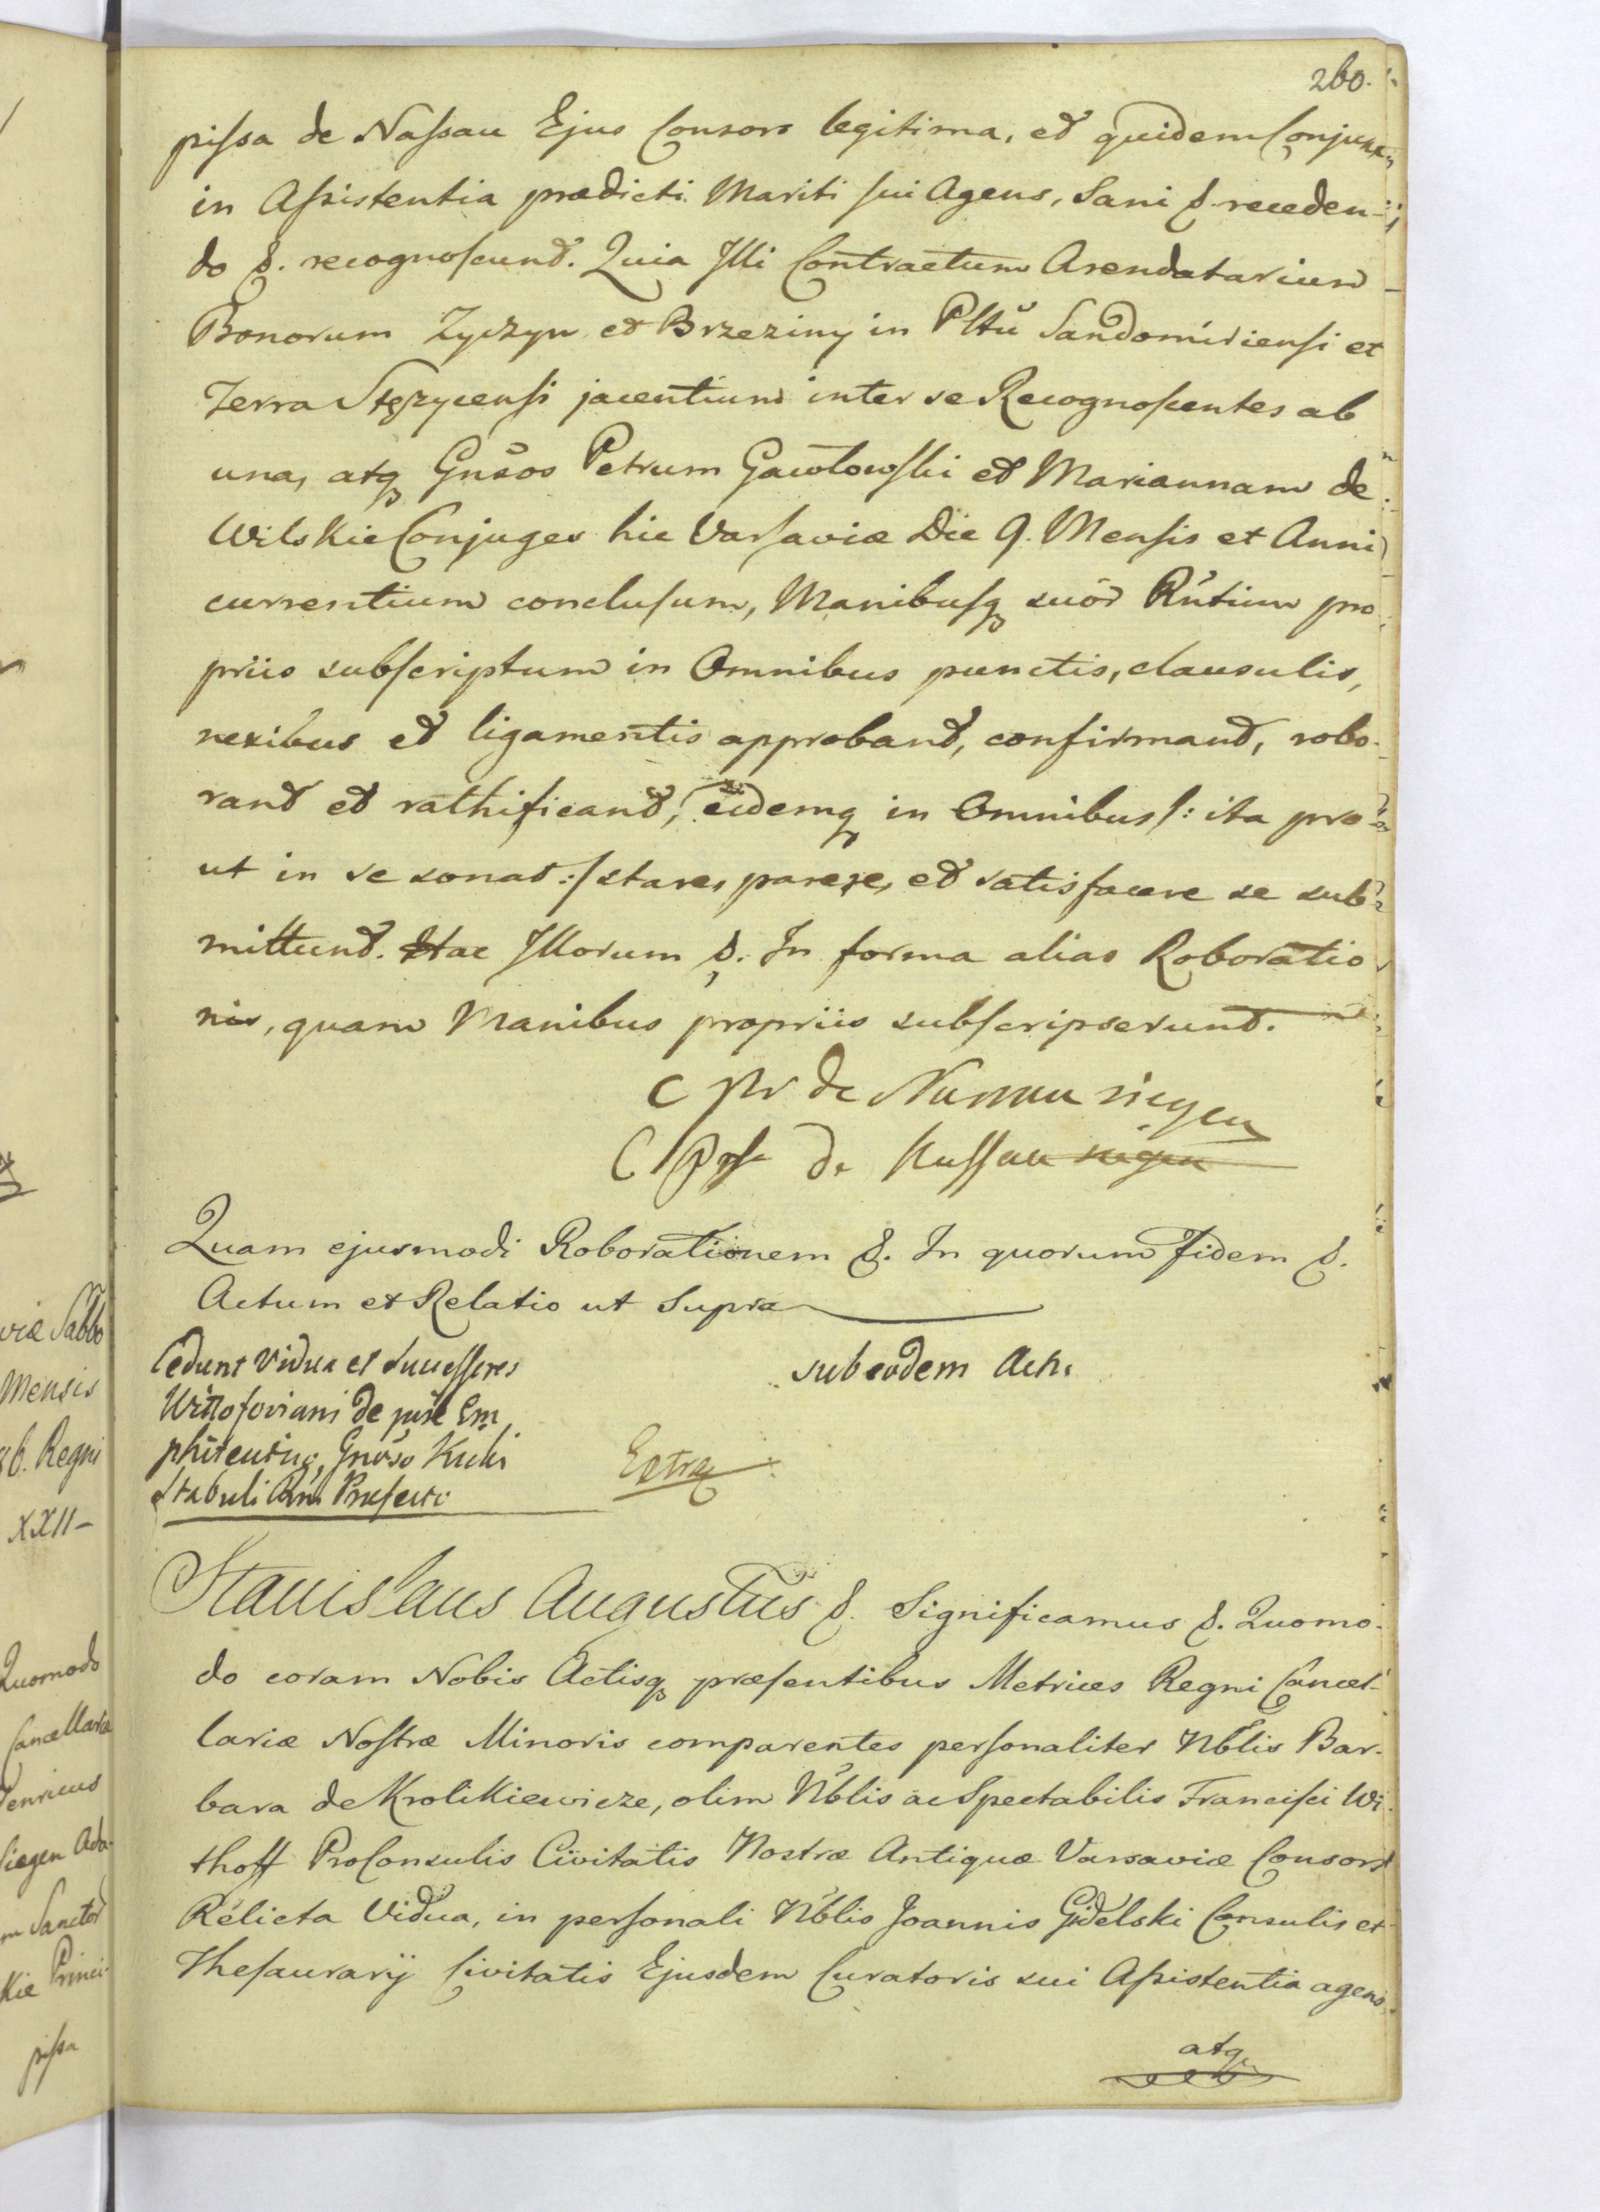 260.
pissa de Nassau Ejus Consors legitima, et quidem Conjunx
in Assistentia prædicti Mariti sui Agens, Sani &. receden-
do &. recognoscunt. Quia Illi Contractum Arendatarium
Bonorum Zyczyn et Brzeziny in Pĺttū Sandomiriensi et
Terra Stęzycensi jacentium inter se Recognoscentes ab
una, atq Gnŝos Petrum Gawłowski et Mariannam de
Wilskie Conjuges hic Varsaviæ Die 9. Mensis et Anni
currentium conclusum, Manibusq suor̄ Rn̄tium pro
priis subscriptum in Omnibus punctis, clausulis,
nexibus et ligamentis approbant, confirmant, robo-
rant et rathificant, eidemq in Omnibus /: ita pro-
ut in se sonat :/ stare, parere, et satisfacere se sub-
mittunt. Hac Illorum &. In forma alias Roboratio
nis, quam Manibus propriis subscripserunt.
C Pr de Nassau siegen
C Pss de Nassau siegen
Quam ejusmodi Roborationem &. In quorum Fidem &.
Actum et Relatio ut Supra
Cedunt Vidua et Successores
Wittofoviani de jure Em
phiteutico, Gnoso Kicki
Stabuli Præfecto
sub eodem Actu
Extra
Stanislaus Augustus &. Significamus &. Quomo-
do coram Nobis Actisq præsentibus Metrices Regni Cancel-
lariæ Nostræ Minoris comparentes personaliter Nb̄lis Bar-
bara de Krolikiewicze, olim Nb̄lis ac Spectabilis Francisci Wi-
thoff ProConsulis Civitatis Nostræ Antiquæ Varsaviæ Consors
Relicta Vidua, in personali Nb̄lis Joannis Gidelski Consulis et
Thesaurarij Civitatis Ejusdem Curatoris sui Assistentia agens
atq
viæ Sabbo
Mensis
86. Regni
XXII-
Quomodo
Cancellariæ
Henricus
Siegen Ada-
m Sanctor
kie Princi-
pissa